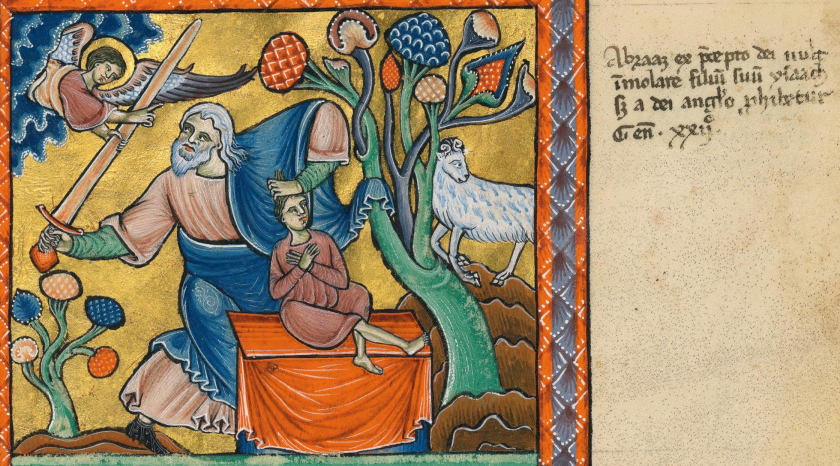 Abraaz ex p̄cepto dei uult
īmolare filiū suū ysaach
sꝫ a dei angl̓o ꝓhibetur
Gen̄. xxijº